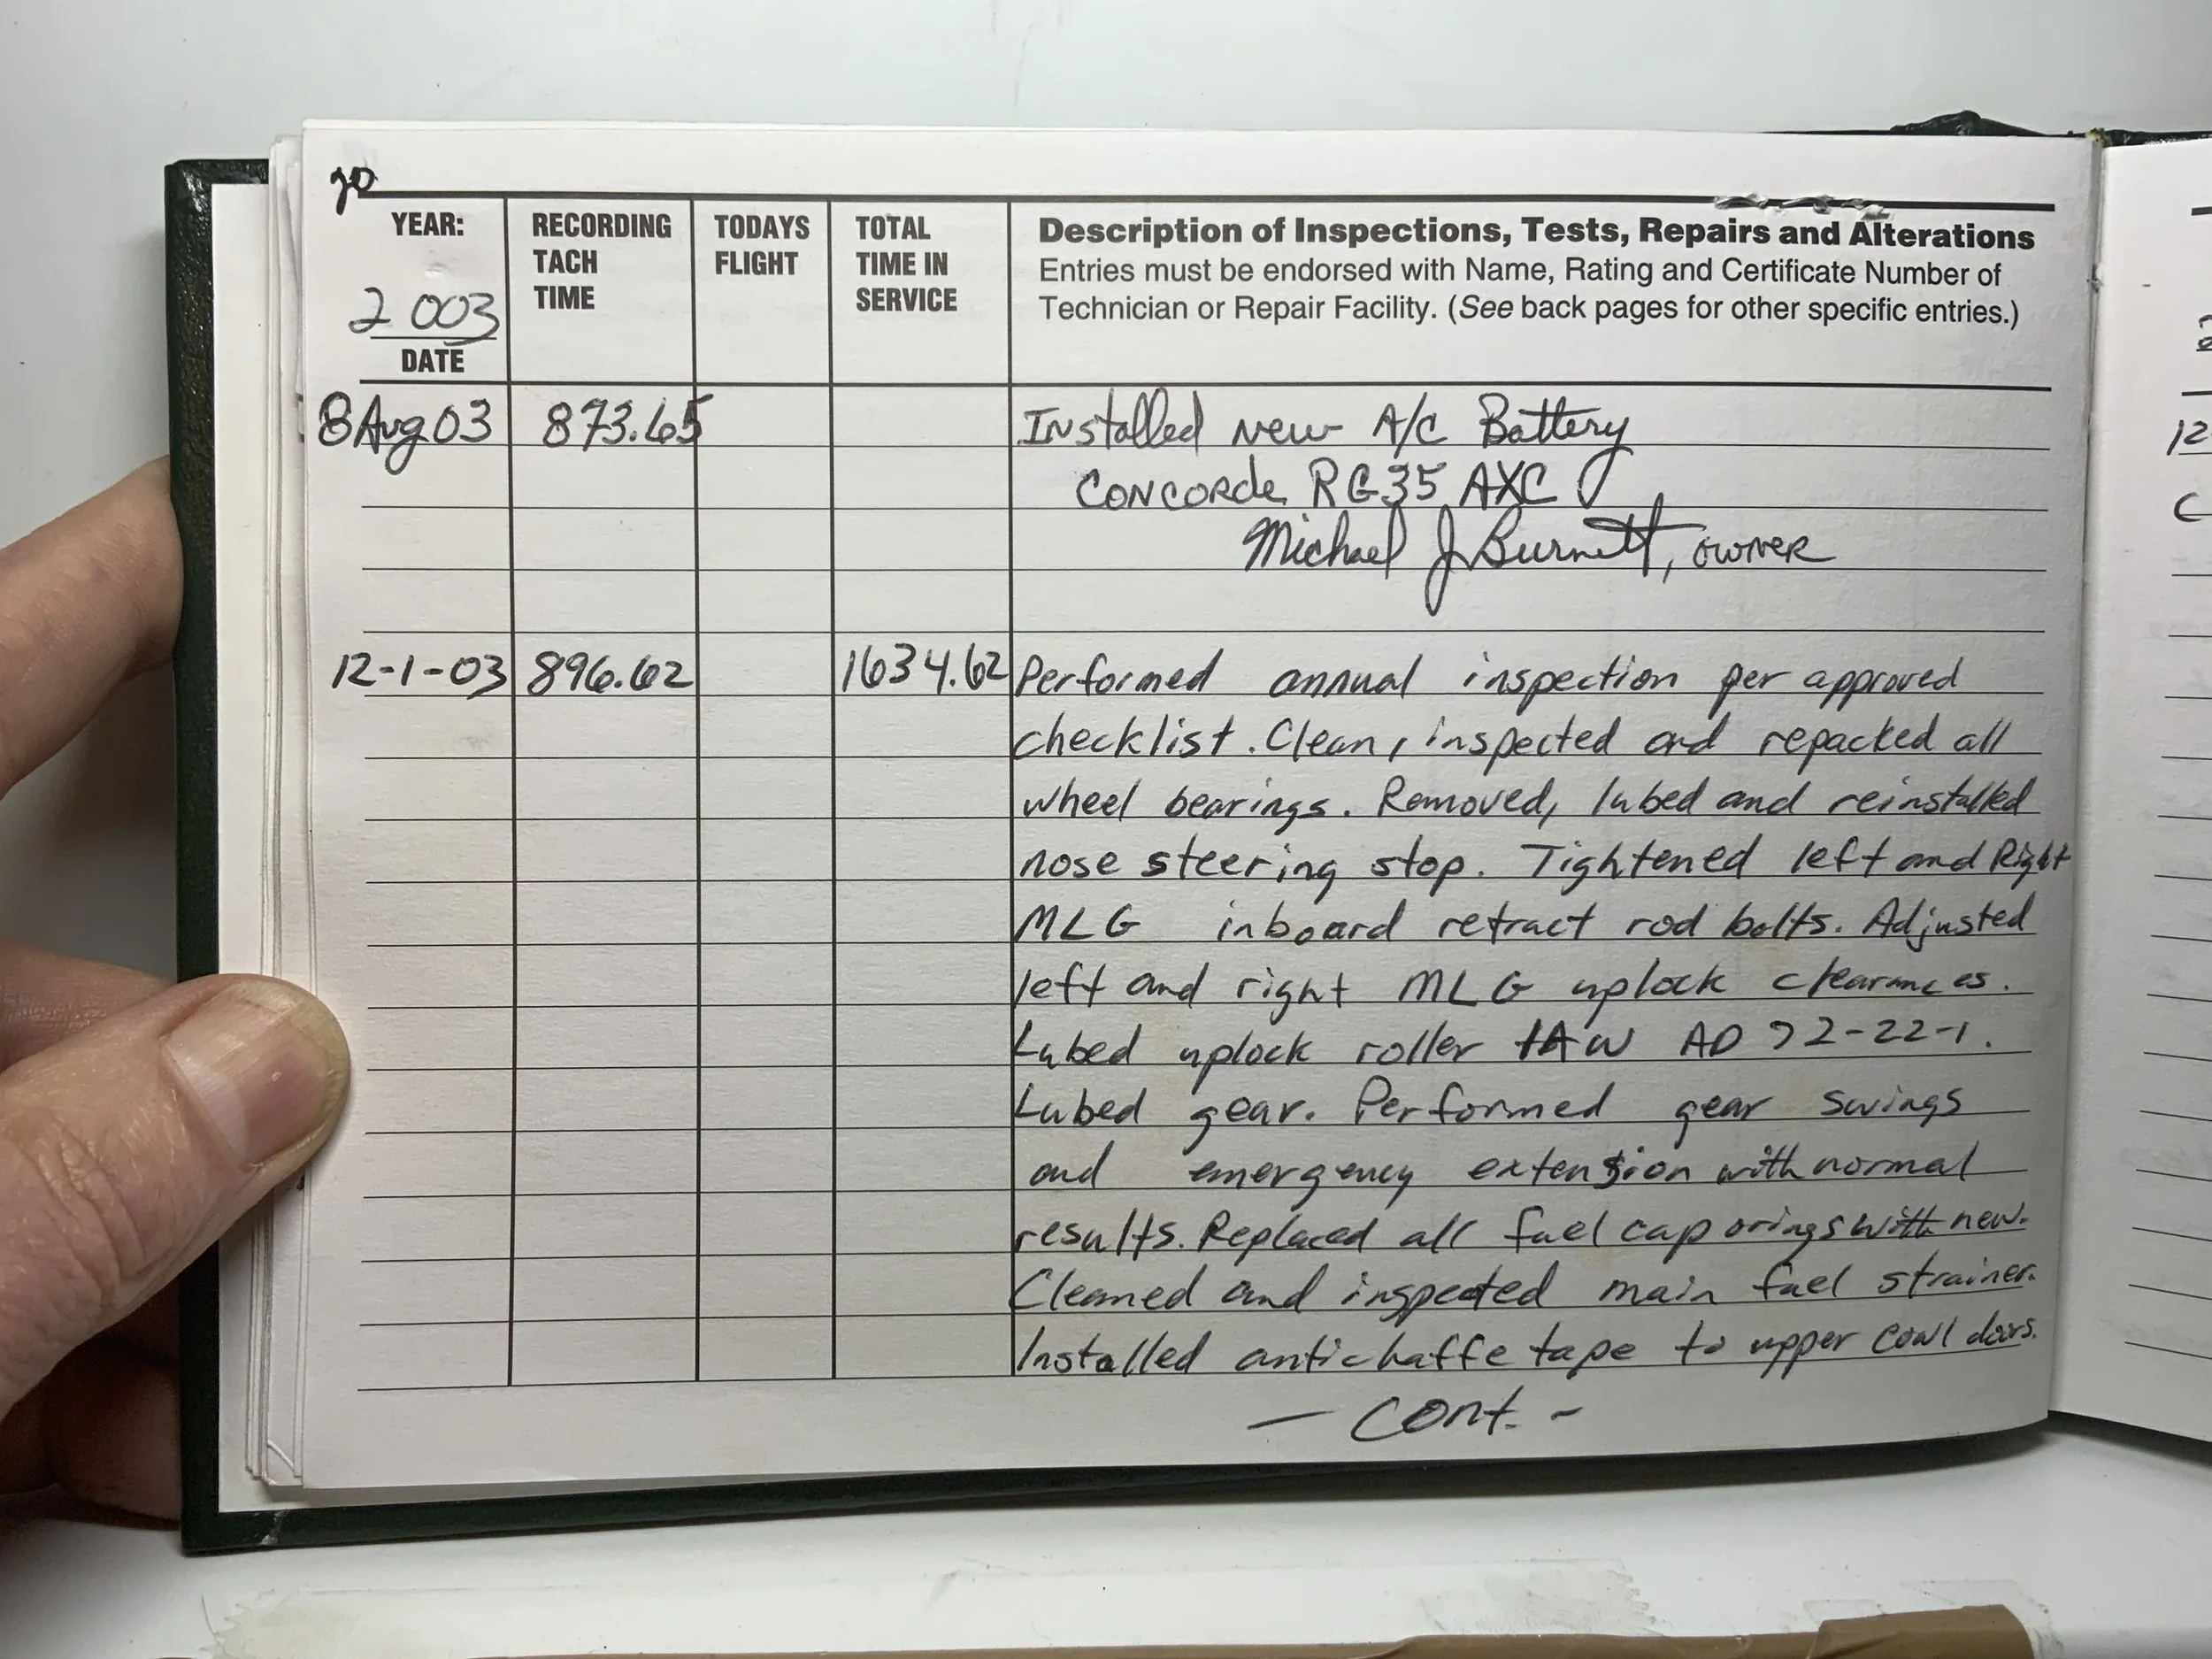 20
YEAR:
2003
DATE
RECORDING
TACH
TIME
TODAYS
FLIGHT
TOTAL
TIME IN
SERVICE
Description of Inspections, Tests, Repairs and Alterations
Entries must be endorsed with Name, Rating and Certificate Number of
Technician or Repair Facility. (See back pages for other specific entries.)
8 Aug 03 873.65 Installed new A/C Battery
Concorde RG35 AXC
Michael J Burnett, owner
12-1-03 896.62 1634.62 Performed annual inspection per approved
checklist. Clean, inspected and repacked all
wheel bearings. Removed, lubed and reinstalled
nose steering stop. Tightened left and Right
MLG inboard retract rod bolts. Adjusted
left and right MLG uplock clearances.
Lubed uplock roller IAW AD 72-22-1.
Lubed gear. Performed gear swings
and emergency extension with normal
results. Replaced all fuel cap orings with new.
Cleaned and inspected main fuel strainer.
Installed antichaffe tape to upper cowl doors.
- cont. -
12
C